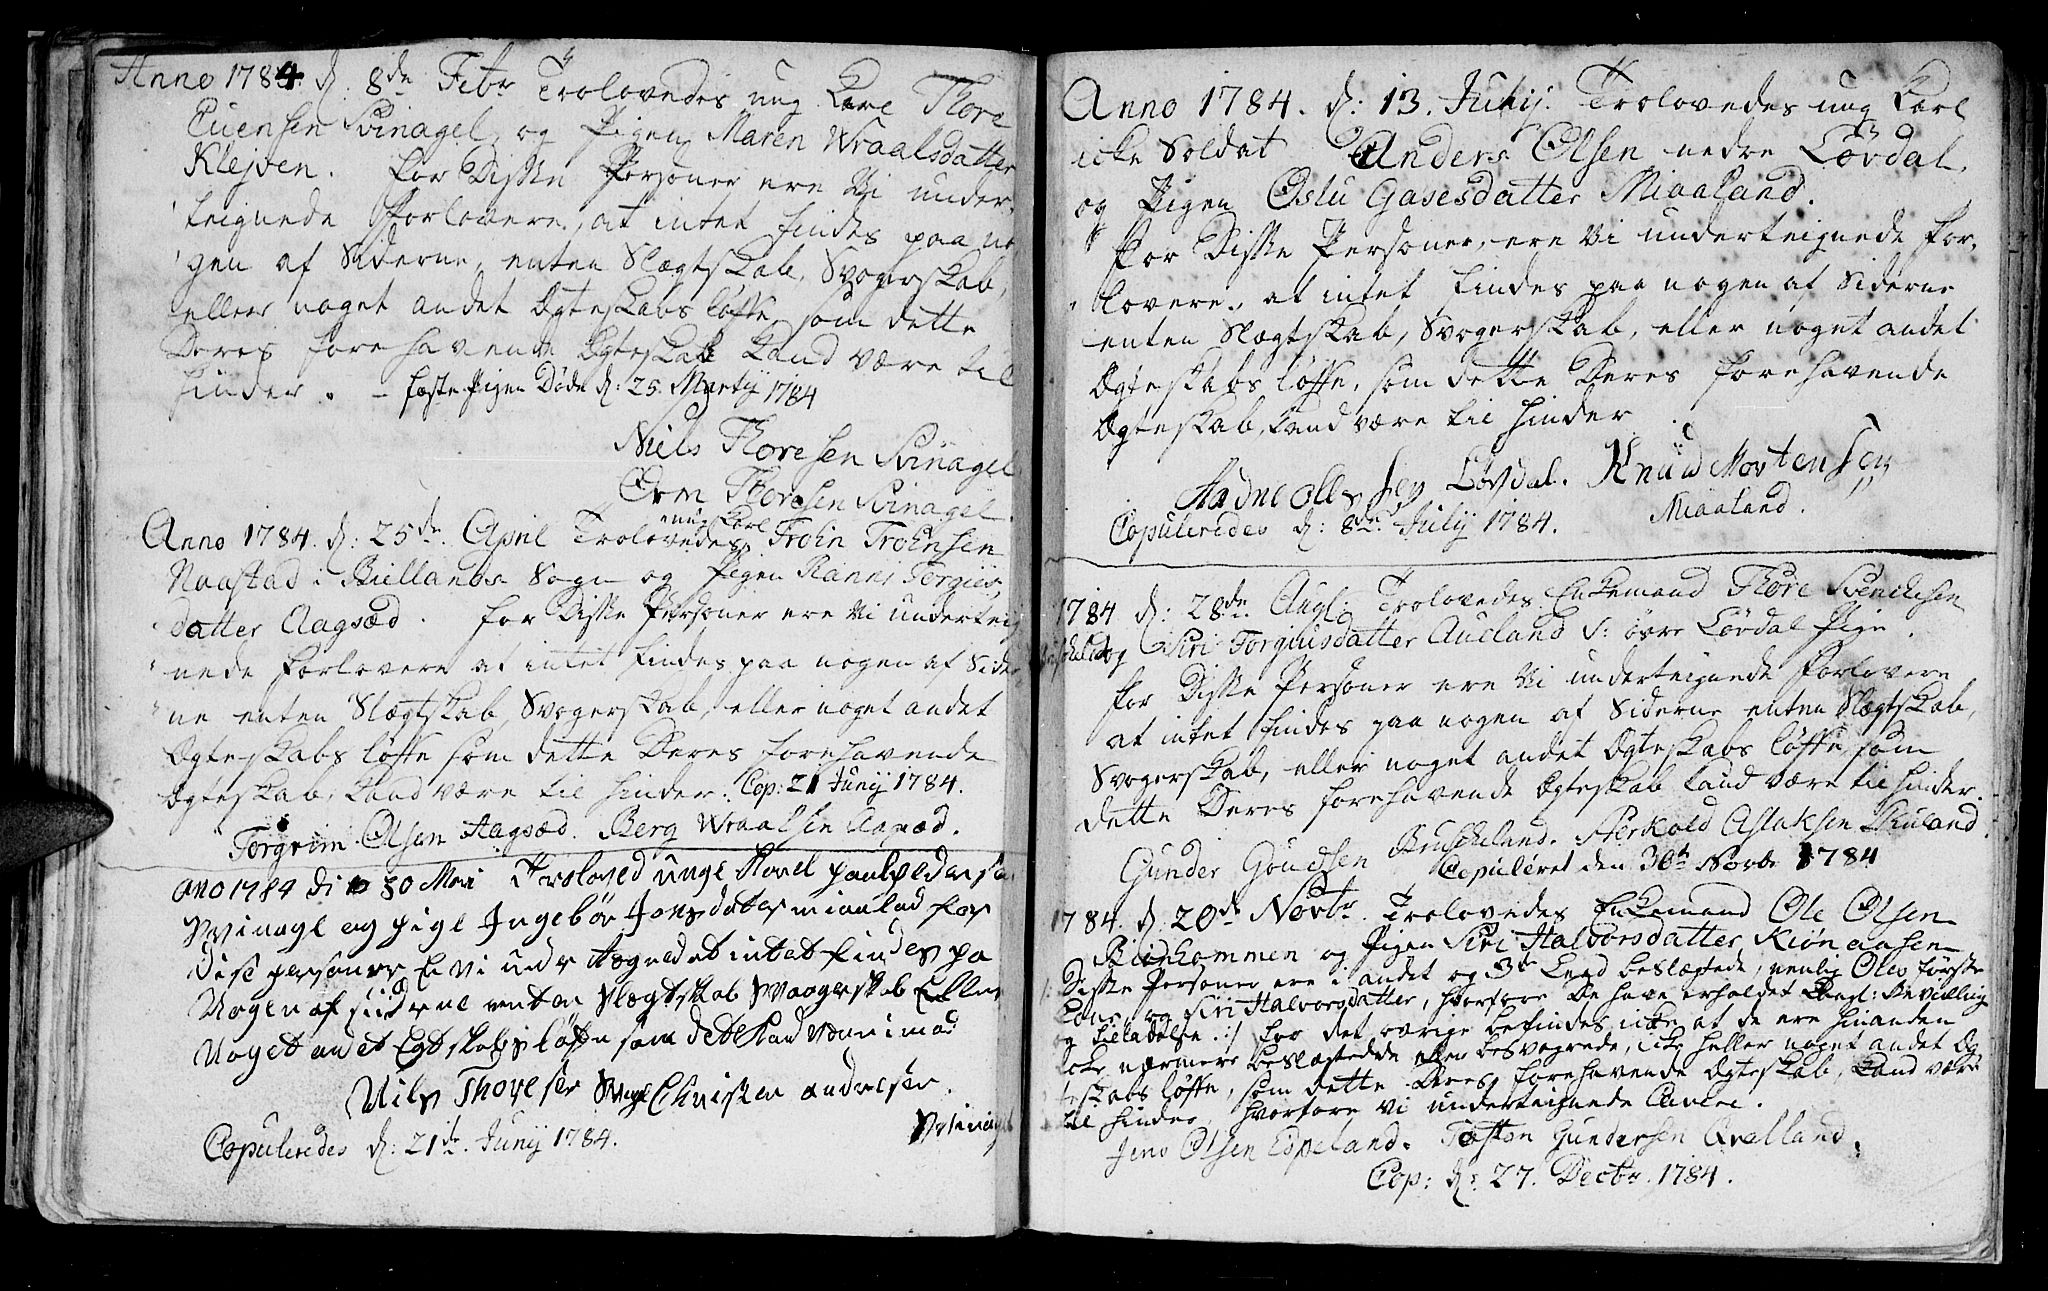 Anno 1784. d. 8de Febr Trolovedes ung Karl Thore
Euensen Svinagel, og Pigen Maren Wraalsdatter
Klejven. For Disse Personer ere Vi under,
teignede Forlovere, at intet findes paa no
gen af Siderne, enten Slægtskab, Svogerskab,
eller noget andet Ægteskabs løffte, som dette
Deres forehavende Ægteskab kand være til
hinder. - fæste Pigen Døde d: 25. Martij 1784
Niels Thoresen Svinagel
Orm Thoresen Svinagel.
ung Karl
Anno 1784. d: 25de April Trolovedes Trohn Trohnsen
Naastad i Biellands Sogn og Pigen Ranni Torgius,
datter Aagsæd. For Disse Personer ere Vi underteig
nede Forlovere at intet findes paa nogen af Sider
ne enten Slægtskab, Svogerskab, eller noget andet
Ægteskabs løffte som dette Deres forehavende
Ægteskab, kand være til hinder. Cop: 21 Junij 1784.
Torgrim Olsen Aagsæd. Berg Wraalsen Aagsæd.
ano 1784 di 30 Mai Troloved unge Karel
Svinagl og pige Ingebor Jonsdater miaalad for
dise personer E vi under tegnede at intet findes pa
Nogen af siderne enten slegtskab Svaagerskab Eller
Noget andet Egtskabs løfte som dete kand være imod
Nils Thoresen Christen andresen.
Svinagel
Copuleredes d: 21de Junij 1784.
Anno 1784. d: 13. Julij. Trolovedes ung Karl
icke Soldat Anders Olsen nedre Løvdal,
og Pigen Oslu Gasesdatter Miaaland.
For Disse Personer, ere Vi underteignede For,
lovere, at intet findes paa nogen af Siderne,
enten Slægtskab, Svogerskab, eller noget andet
Ægteskabs løffte, som dette Deres forehavende
Ægteskab, kand være til hinder.
Aadne Ollssen Løvdal. Knüd Mortensen
Miaaland.
Copuleredes d: 8de Julij 1784.
1784 d: 28de Augl: Trolovedes Enkemand Thore Svenchesen
og Siri Torgiusdatter Aueland v: øvre Løvdal Pige.
For Disse Personer ere Vi underteignede Forlovere
at intet findes paa nogen af Siderne enten Slægtskab,
Svogerskab, eller noget andet Ægteskabs løffte, som
dette Deres forehavende Ægteskab kand være til hinder.
Gunder Goudsen Bruskeland. Aerkold Aslaksen Skuland.
Copuleret den 30te Novbr 1784
1784. d: 20de Novbr. Trolovedes Enkemand Ole Olsen
og Pigen Siri Halvorsdatter Kiønaasen
Disse Personer ere i andet og 3de Leed beslægtede, nemlig Oles første
Kone, og Siri Halvorsdatter, hvorfore De have erholdet Kongl: Bevilling
og tilladelse :/ For det øvrige befindes icke at de ere hinanden
icke nærmere beslægtede eller besvogrede, icke heller noget andet Æg
teskabs løffte, som dette Deres forehavende Ægteskab, kand være
til hinder, hvorfore Vi underteignede Cavere.
Jens Olsen Espeland. Tosten Gundersen Qvelland.
Cop: d: 27. Decbr. 1784.